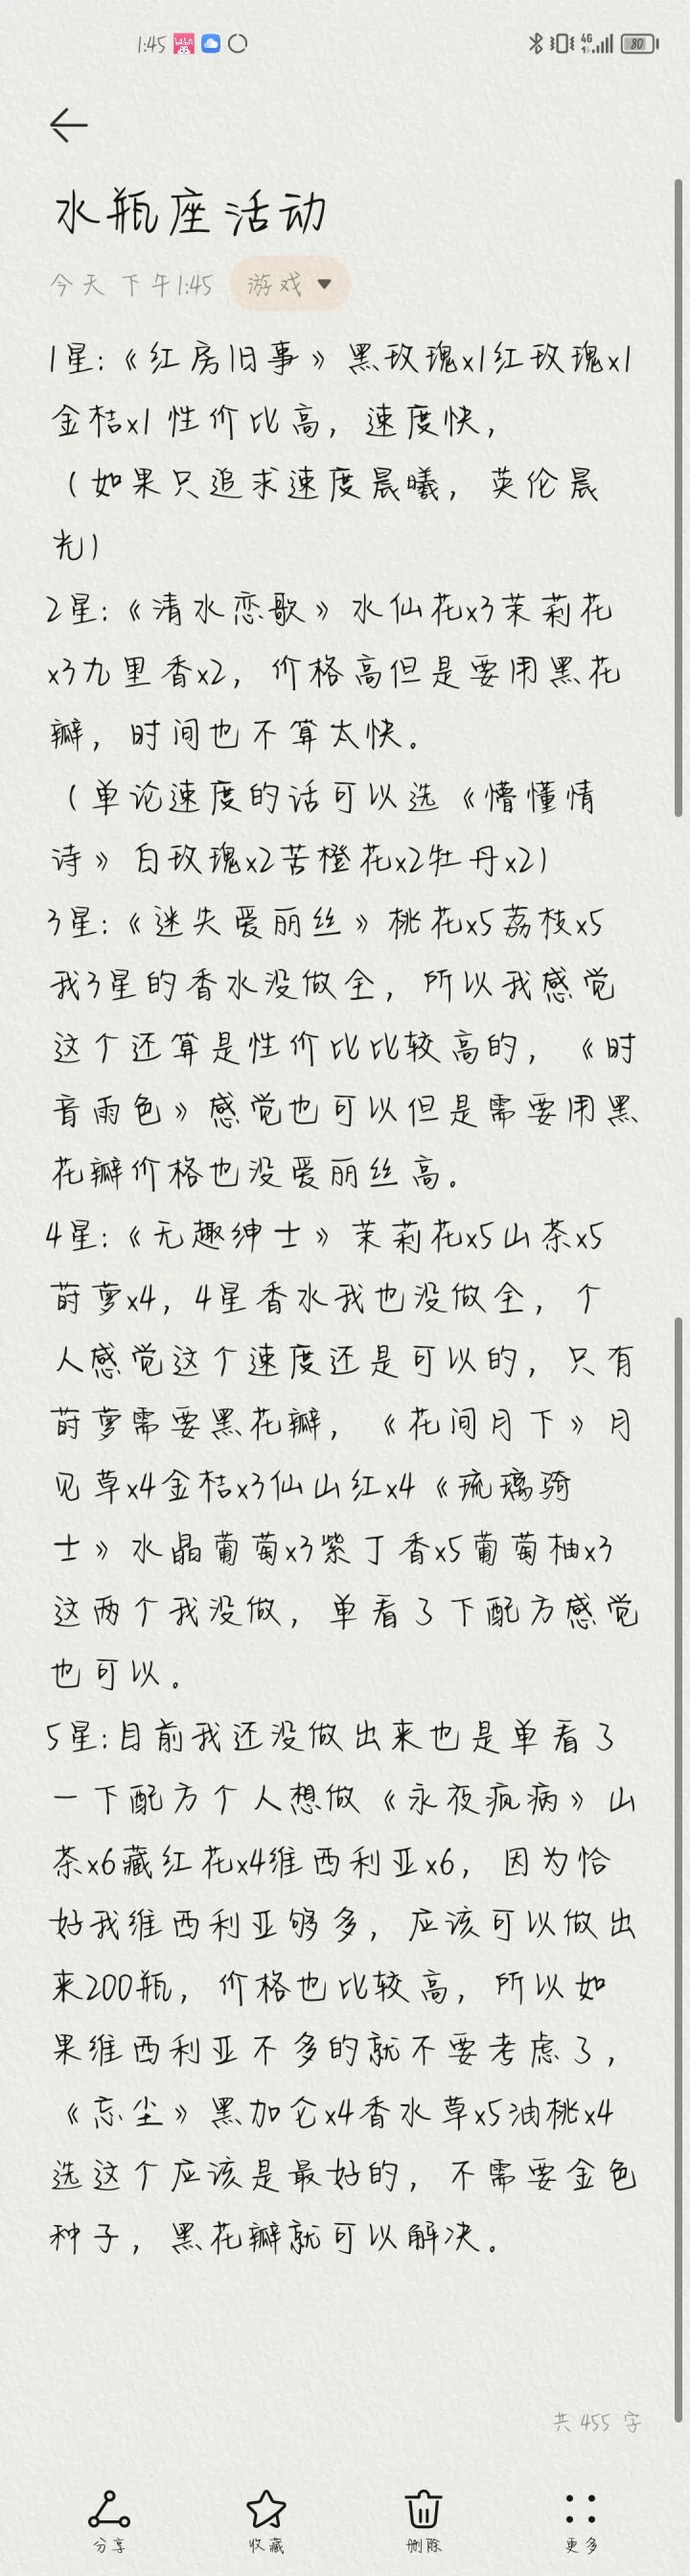 1:45
4G
80
水瓶座活动
今天 下午1:45 游戏
1星:《红房旧事》黑玫瑰x1红玫瑰x1
金桔x1 性价比高，速度快，
（如果只追求速度晨曦，英伦晨
光）
2星:《清水恋歌》水仙花x3茉莉花
x3九里香x2，价格高但是要用黑花
瓣，时间也不算太快。
（单论速度的话可以选《懵懂情
诗》白玫瑰x2苦橙花x2牡丹x2）
3星:《迷失爱丽丝》桃花x5荔枝x5
我3星的香水没做全，所以我感觉
这个还算是性价比比较高的，《时
音雨色》感觉也可以但是需要用黑
花瓣价格也没爱丽丝高。
4星:《无趣绅士》茉莉花x5山茶x5
莳萝x4，4星香水我也没做全，个
人感觉这个速度还是可以的，只有
莳萝需要黑花瓣，《花间月下》月
见草x4金桔x3仙山红x4《琉璃骑
士》水晶葡萄x3紫丁香x5葡萄柚x3
这两个我没做，单看了下配方感觉
也可以。
5星:目前我还没做出来也是单看了
一下配方个人想做《永夜疯病》山
茶x6藏红花x4维西利亚x6，因为恰
好我维西利亚够多，应该可以做出
来200瓶，价格也比较高，所以如
果维西利亚不多的就不要考虑了，
《忘尘》黑加仑x4香水草x5油桃x4
选这个应该是最好的，不需要金色
种子，黑花瓣就可以解决。
共 455 字
分享 收藏 删除 更多